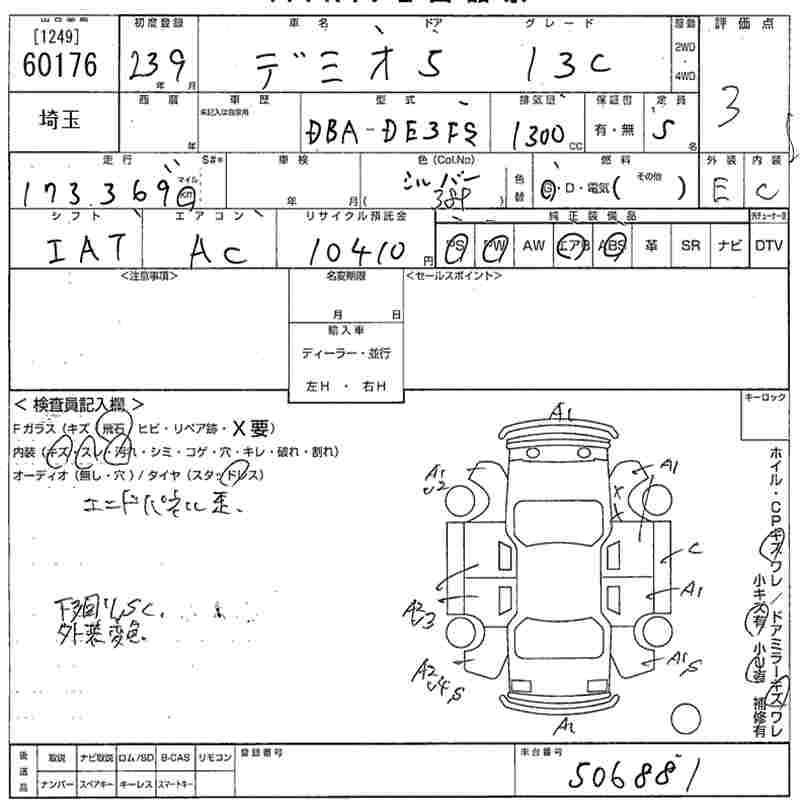 [1249] 初度登録 車名 ドア グレード 駆動 評価点
60176 23 9 デミオ 5 13C 2WD・4WD 3
年 月
埼玉 西暦 車歴 型式 排気量 保証書 定員
未記入は自家用 DBA-DE3FS 1300 CC 有・無 5 名
年
走行 S#* 車検 色(Col.No) 燃料 外装 内装
173.369 マイル km 年 月 シルバー 38P 色替 G・D・電気( その他 ) E C
シフト エアコン リサイクル預託金 純正装備品
IAT AC 10410 円 PS PW AW エアB ABS 革 SR ナビ DTV
<注意事項> 名変期限 <セールスポイント>
月 日
輸入車
ディーラー・並行
左H ・ 右H
< 検査員記入欄 > キーロック
Fガラス(キズ・飛石・ヒビ・リペア跡・X要)
内装(キズ・スレ・汚れ・シミ・コゲ・穴・キレ・破れ・割れ)
オーディオ(無し・穴)/タイヤ(スタッドレス)
下回りSC.
外装変色.
A1
A1 U2 A1
X
X
C
A2 U3 A1
A2 U4 S A1 S
A2
ホイル・CPキズワレ/ドアミラーキズワレ
小キズ有 小凹有 補修有
後送品 取説 ナビ取説 ロム/SD B-CAS リモコン 登録番号 車台番号
ナンバー スペアキー キーレス スマートキー 506881